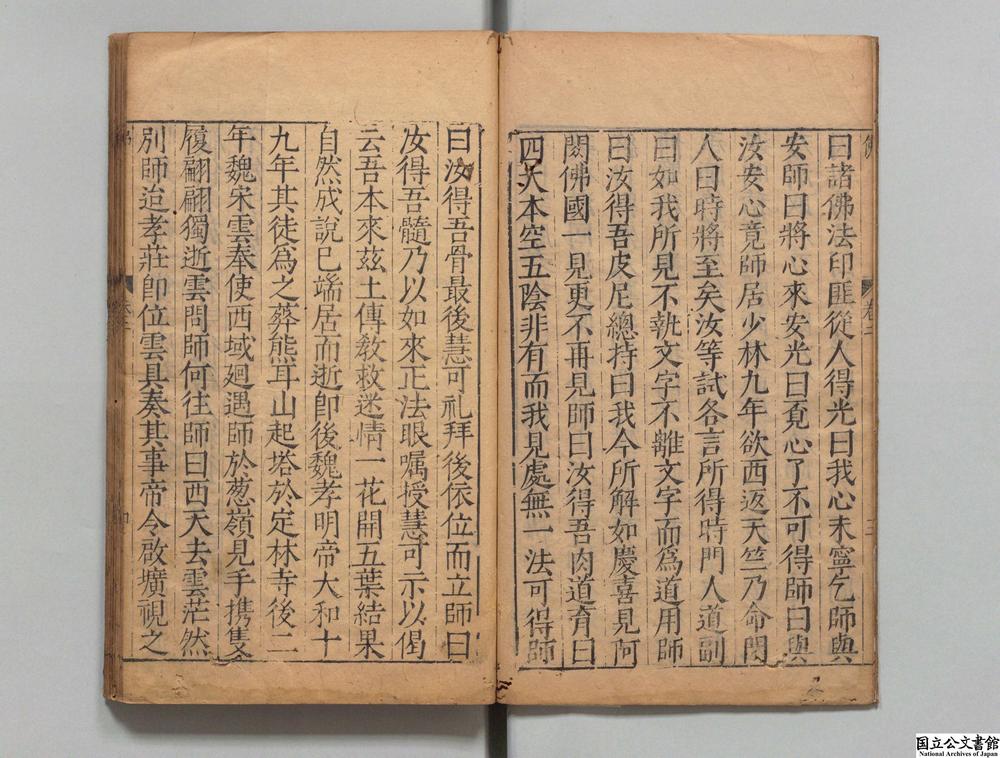 曰諸佛法印匪從人得光曰我心未寧乞師與
安師曰將心來安光曰覓心了不可得師曰與
汝安心竟師居少林九年欲西返天竺乃命門
人曰時將至矣汝等試各言所得時門人道副
曰如我所見不執文字不離文字而爲道用師
曰汝得吾皮尼總持曰我今所解如慶喜見阿
閦佛國一見更不再見師曰汝得吾肉道育曰
四大本空五陰非有而我見處無一法可得師
曰汝得吾骨最後慧可礼拜後依位而立師曰
汝得吾髓乃以如來正法眼囑授慧可示以偈
云吾本來茲土傳教救迷情一花開五葉結果
自然成說已端居而逝卽後魏孝明帝大和十
九年其徒爲之葬熊耳山起塔於定林寺後二
年魏宋雲奉使西域廻遇師於葱嶺見手携隻
履翩翩獨逝雲問師何往師曰西天去雲茫然
別師迨孝莊卽位雲具奏其事帝令啟壙視之
卷二
国立公文書館
National Archives of Japan